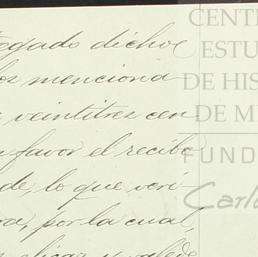 tregado dichos
los menciona
veintitres cen
favor el recibo
de, lo que veri-
por la cual,
CENT
ESTU
DE HIS
DE M
FUND
Carlo